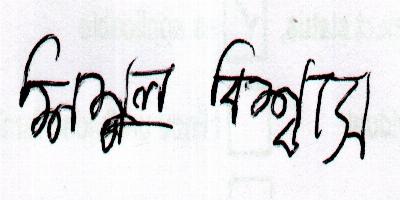 শিমুল বিশ্বাস